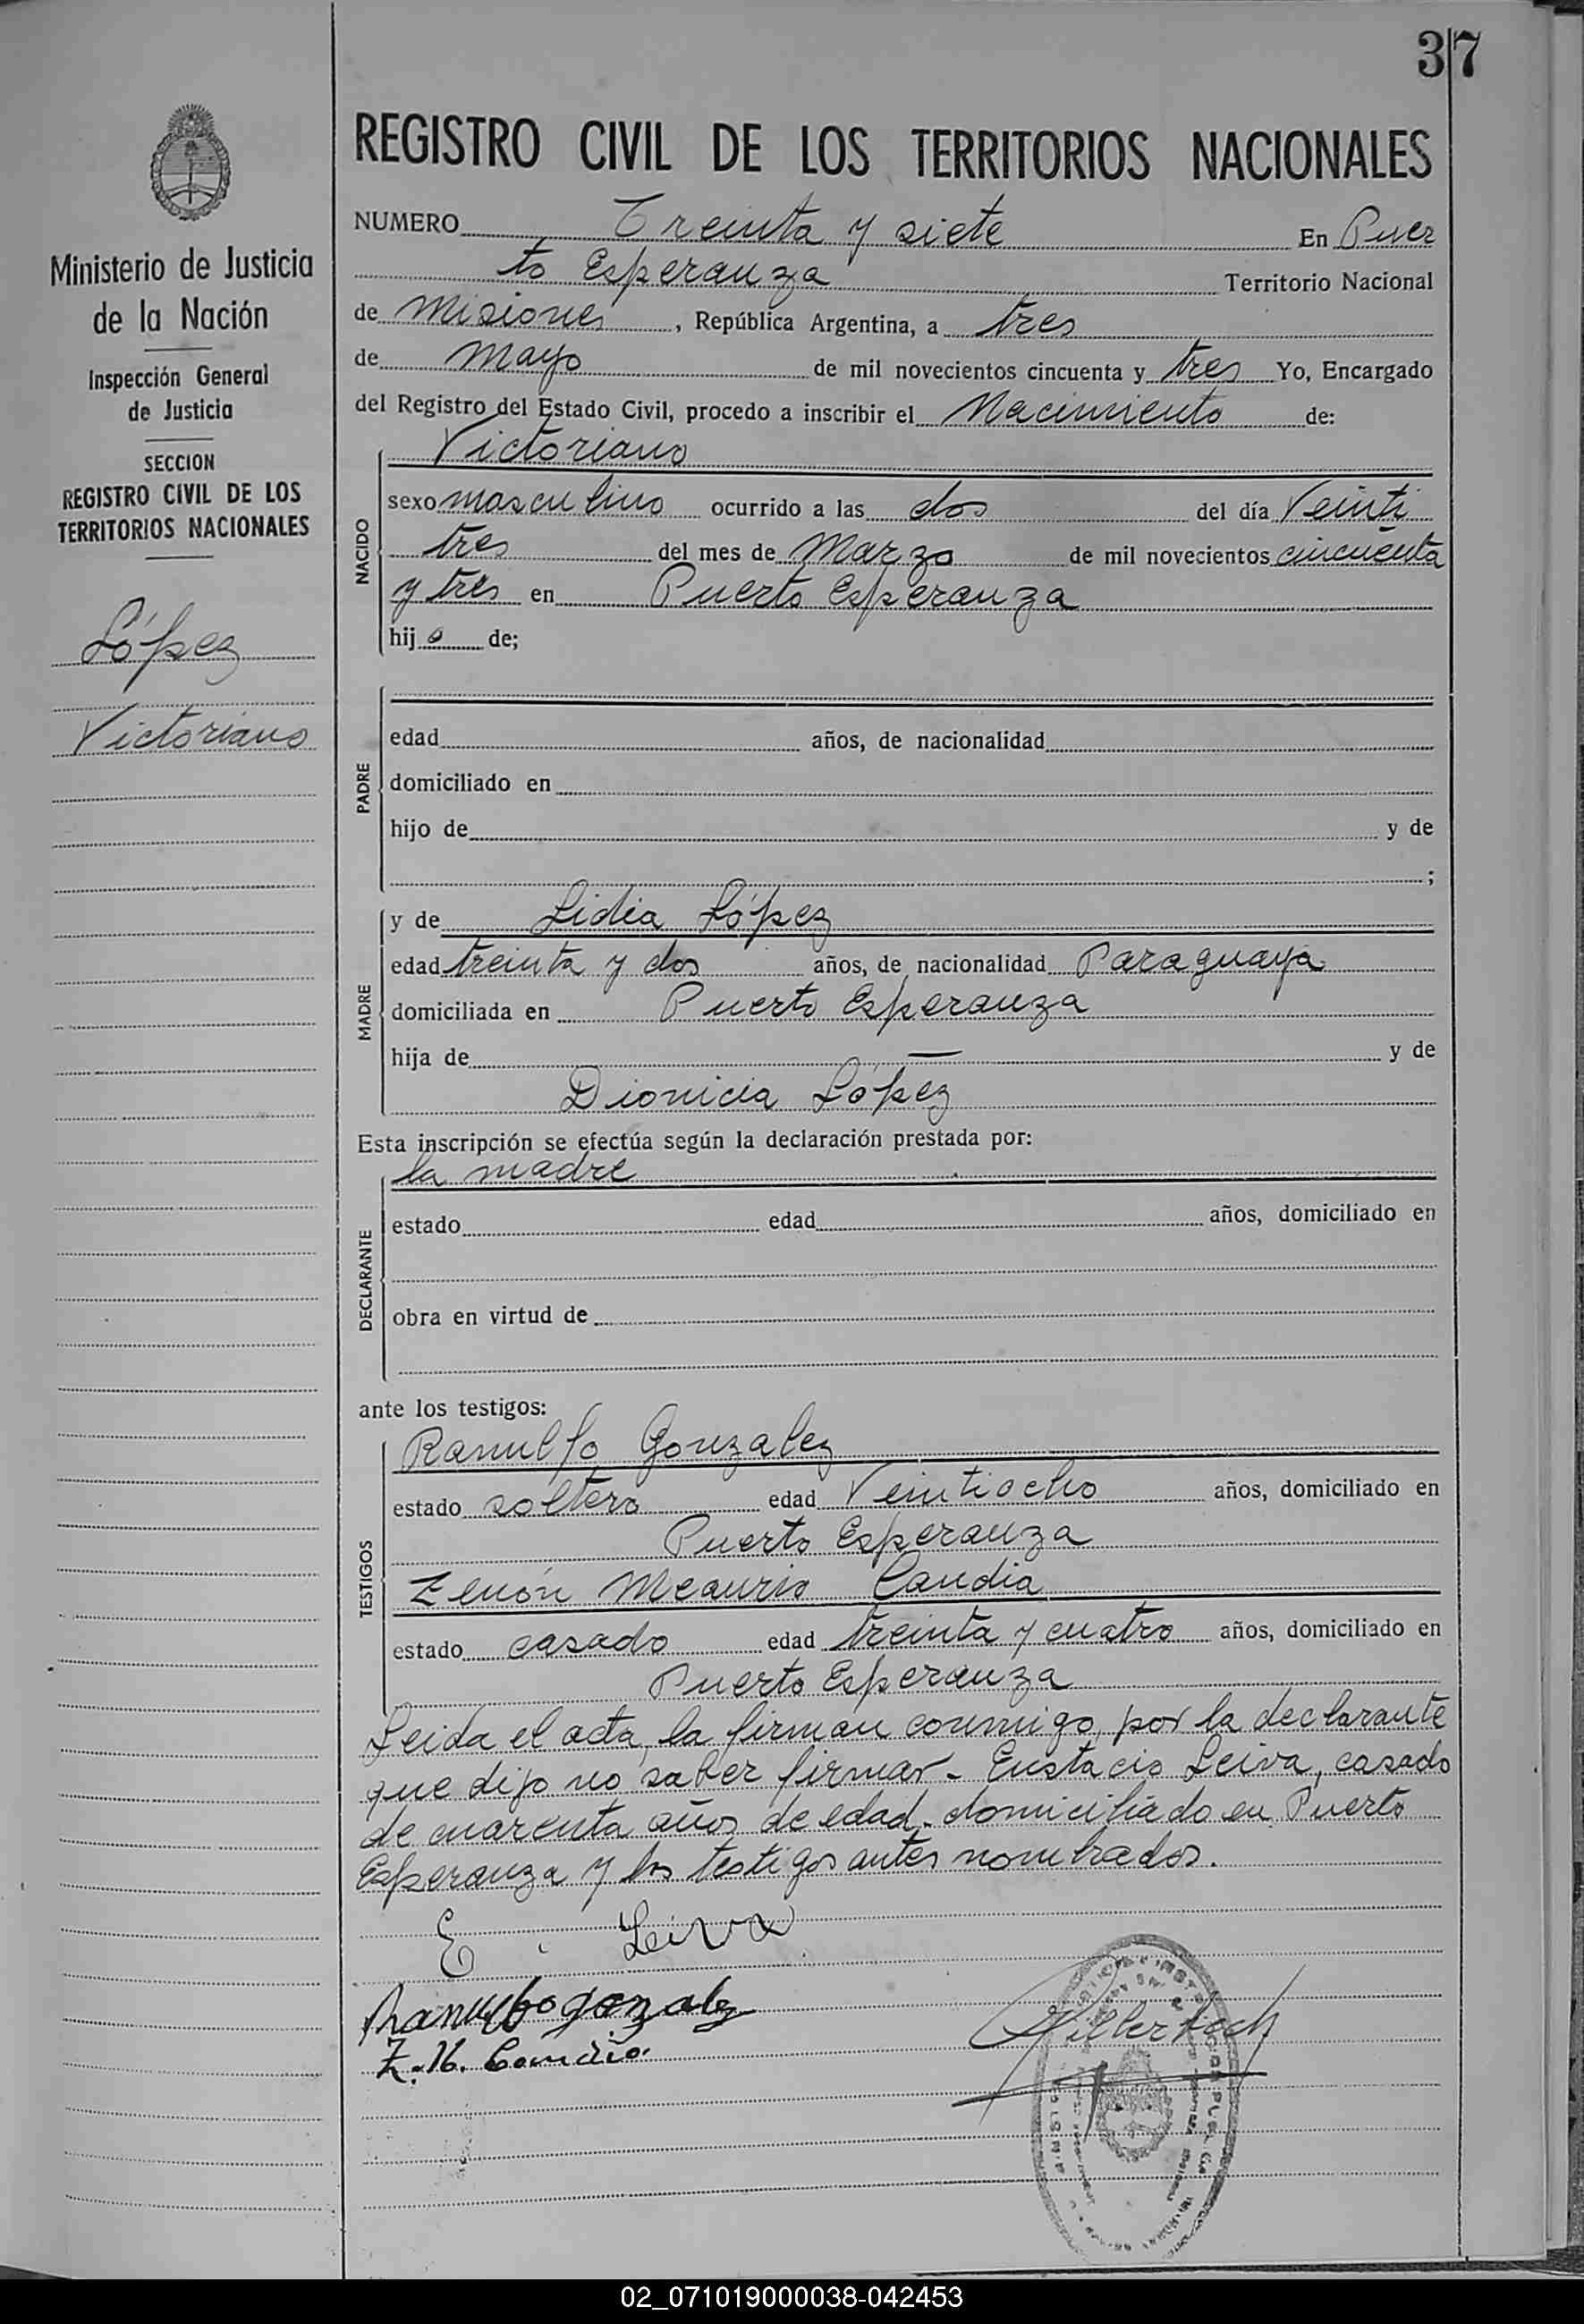 37
REGISTRO CIVIL DE LOS TERRITORIOS NACIONALES
Ministerio de Justicia
de la Nación
Inspección General
de Justicia
SECCION
REGISTRO CIVIL DE LOS
TERRITORIOS NACIONALES
López
Victoriano
NUMERO Treinta y siete En Puer
to Esperanza Territorio Nacional
de Misiones, República Argentina, a tres
de Mayo de mil novecientos cincuenta y tres Yo, Encargado
del Registro del Estado Civil, procedo a inscribir el Nacimiento de:
NACIDO
Victoriano
sexo masculino ocurrido a las dos del día Veinti
tres del mes de Marzo de mil novecientos cincuenta
y tres en Puerto Esperanza
hij o de;
PADRE
edad años, de nacionalidad
domiciliado en
hijo de y de
;
MADRE
y de Lidia López
edad treinta y dos años, de nacionalidad Paraguaya
domiciliada en Puerto Esperanza
hija de — y de
Dionicia López
Esta inscripción se efectúa según la declaración prestada por:
DECLARANTE
la madre
estado edad años, domiciliado en
obra en virtud de
ante los testigos:
TESTIGOS
Ranulfo Gonzalez
estado soltero edad Veintiocho años, domiciliado en
Puerto Esperanza
Zenón Meaurio Candia
estado casado edad treinta y cuatro años, domiciliado en
Puerto Esperanza
Leida el acta, la firman conmigo, por la declarante
que dijo no saber firmar - Eustacio Leiva, casado
de cuarenta años de edad, domiciliado en Puerto
Esperanza y los testigos antes nombrados.
E. Leiva
Ranulfo gonzalez
Z. M. Candia.
02_071019000038-042453